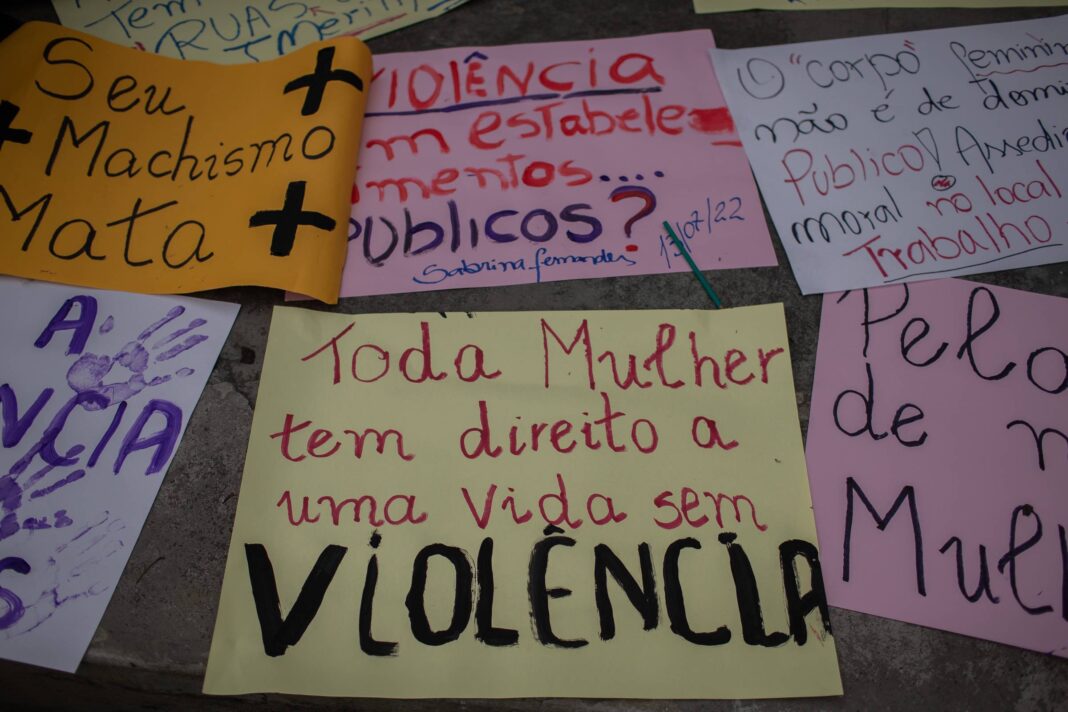 Tem
RUAS
Seu
Machismo
Mata
VIOLÊNCIA
Em estabele
cimentos....
PÚBLICOS?
Sabrina fernandes 13/07/22
O "corpo" feminin
não é de domí
Público! Assedi
moral no local
Trabalho
A
NCIA
S
Toda Mulher
tem direito a
uma vida sem
VIOLÊNCIA
Pelo
de
Mul